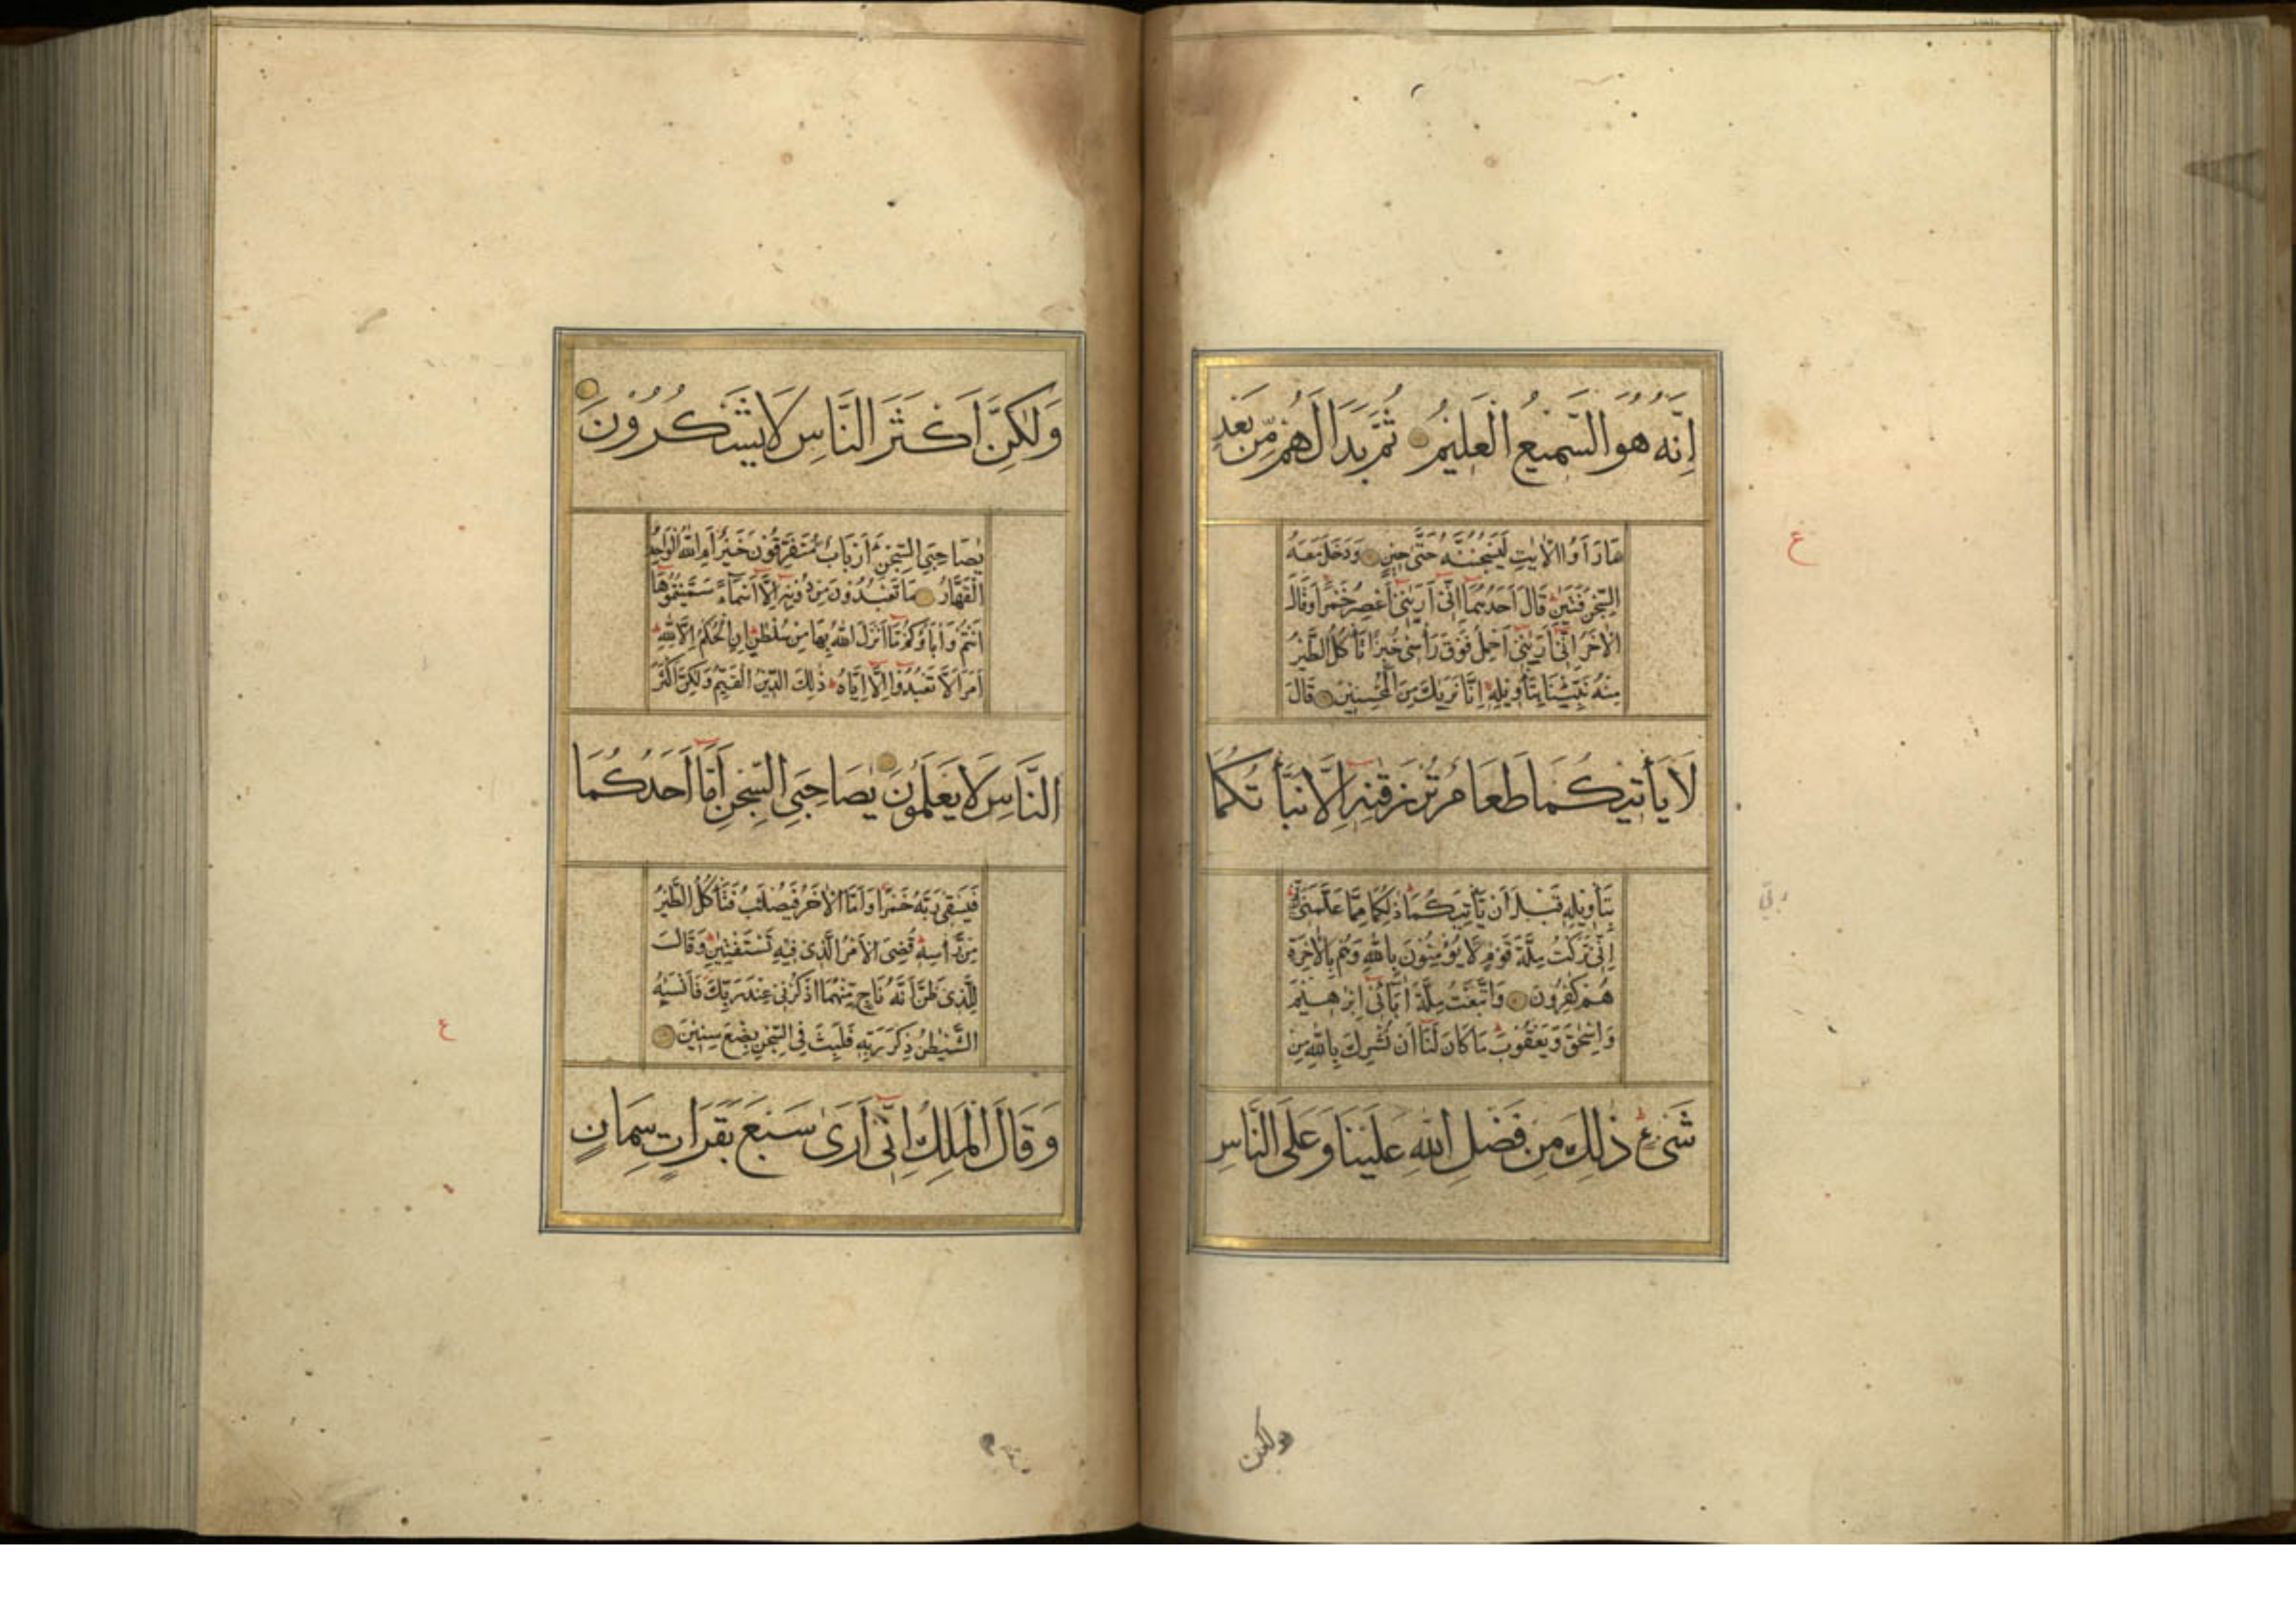 اِنَّهُ هُوَ السَّمِيعُ الْعَلِيمُ ثُمَّ بَدَا لَهُمْ مِّنْ بَعْدِ
مَا رَاَوُا الْاٰيٰتِ لَيَسْجُنُنَّهُ حَتّٰى حِينٍ وَدَخَلَ مَعَهُ
السِّجْنَ فَتَيٰنِ قَالَ اَحَدُهُمَا اِنّٓى اَرٰينٓى اَعْصِرُ خَمْرًا وَقَالَ
الْاٰخَرُ اِنّٓى اَرٰينٓى اَحْمِلُ فَوْقَ رَاْسِى خُبْزًا تَاْكُلُ الطَّيْرُ
مِنْهُ نَبِّئْنَا بِتَاْوِيلِهِ اِنَّا نَرٰيكَ مِنَ الْمُحْسِنِينَ قَالَ
لَا يَاْتِيكُمَا طَعَامٌ تُرْزَقٰنِهٖٓ اِلَّا نَبَّاْتُكُمَا
بِتَاْوِيلِهِ قَبْلَ اَنْ يَّاْتِيَكُمَا ذٰلِكُمَا مِمَّا عَلَّمَنِى رَبّٓى
اِنّٓى تَرَكْتُ مِلَّةَ قَوْمٍ لَّا يُؤْمِنُونَ بِاللّٰهِ وَهُمْ بِالْاٰخِرَةِ
هُمْ كٰفِرُونَ وَاتَّبَعْتُ مِلَّةَ اٰبَآئٓى اِبْرٰهِيمَ
وَاِسْحٰقَ وَيَعْقُوبَ مَا كَانَ لَنَآ اَنْ نُّشْرِكَ بِاللّٰهِ مِنْ
شَىْءٍ ذٰلِكَ مِنْ فَضْلِ اللّٰهِ عَلَيْنَا وَعَلَى النَّاسِ
ولكن
ع
وَلٰكِنَّ اَكْثَرَ النَّاسِ لَا يَشْكُرُونَ
يٰصَاحِبَىِ السِّجْنِ ءَاَرْبَابٌ مُّتَفَرِّقُونَ خَيْرٌ اَمِ اللّٰهُ الْوَاحِدُ
الْقَهَّارُ مَا تَعْبُدُونَ مِنْ دُونِهٖٓ اِلَّآ اَسْمَآءً سَمَّيْتُمُوهَآ
اَنْتُمْ وَاٰبَآؤُكُمْ مَّآ اَنْزَلَ اللّٰهُ بِهَا مِنْ سُلْطٰنٍ اِنِ الْحُكْمُ اِلَّا لِلّٰهِ
اَمَرَ اَلَّا تَعْبُدُوٓا اِلَّآ اِيَّاهُ ذٰلِكَ الدِّينُ الْقَيِّمُ وَلٰكِنَّ اَكْثَرَ
النَّاسِ لَا يَعْلَمُونَ يٰصَاحِبَىِ السِّجْنِ اَمَّآ اَحَدُكُمَا
فَيَسْقِى رَبَّهُ خَمْرًا وَاَمَّا الْاٰخَرُ فَيُصْلَبُ فَتَاْكُلُ الطَّيْرُ
مِنْ رَّاْسِهِ قُضِىَ الْاَمْرُ الَّذِى فِيهِ تَسْتَفْتِيٰنِ وَقَالَ
لِلَّذِى ظَنَّ اَنَّهُ نَاجٍ مِّنْهُمَا اذْكُرْنِى عِنْدَ رَبِّكَ فَاَنْسٰيهُ
الشَّيْطٰنُ ذِكْرَ رَبِّهِ فَلَبِثَ فِى السِّجْنِ بِضْعَ سِنِينَ
وَقَالَ الْمَلِكُ اِنّٓى اَرٰى سَبْعَ بَقَرَاتٍ سِمَانٍ
ع